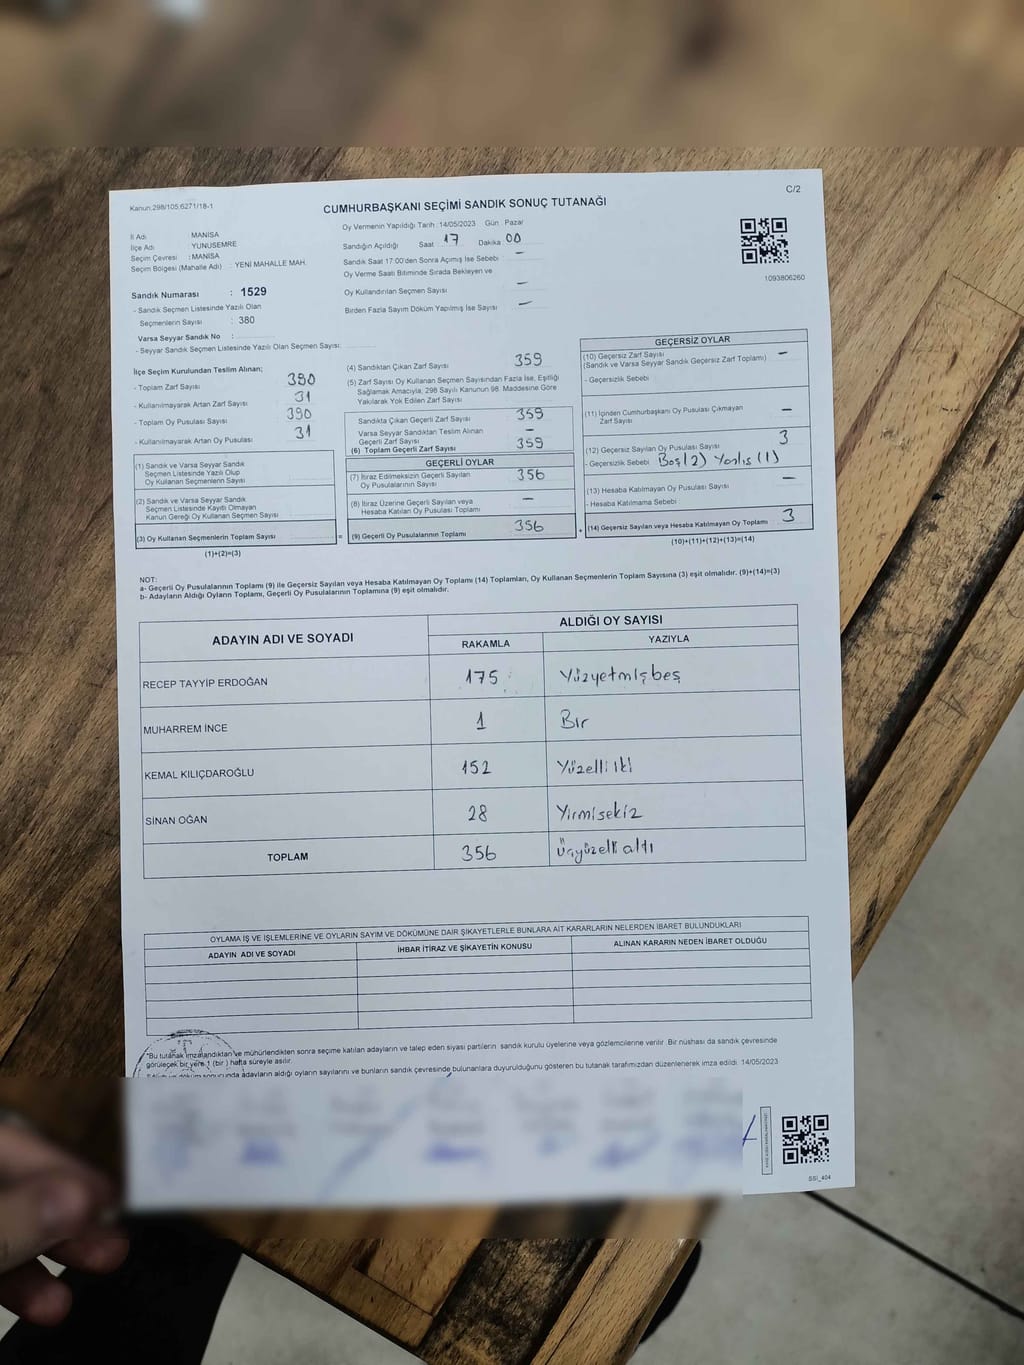 Kanun:298/105;6271/18-1
C/2
CUMHURBAŞKANI SEÇİMİ SANDIK SONUÇ TUTANAĞI
İl Adı : MANİSA
İlçe Adı : YUNUSEMRE
Seçim Çevresi : MANİSA
Seçim Bölgesi (Mahalle Adı) : YENİ MAHALLE MAH.
Sandık Numarası : 1529
- Sandık Seçmen Listesinde Yazılı Olan
Seçmenlerin Sayısı : 380
Varsa Seyyar Sandık No :
- Seyyar Sandık Seçmen Listesinde Yazılı Olan Seçmen Sayısı:
Oy Vermenin Yapıldığı Tarih : 14/05/2023 Gün : Pazar
Sandığın Açıldığı Saat 17 Dakika 00
Sandık Saat 17:00'den Sonra Açılmış İse Sebebi –
Oy Verme Saati Bitiminde Sırada Bekleyen ve
Oy Kullandırılan Seçmen Sayısı –
Birden Fazla Sayım Döküm Yapılmış İse Sayısı –
1093806260
İlçe Seçim Kurulundan Teslim Alınan;
- Toplam Zarf Sayısı 390
- Kullanılmayarak Artan Zarf Sayısı 31
- Toplam Oy Pusulası Sayısı 390
- Kullanılmayarak Artan Oy Pusulası 31
(1) Sandık ve Varsa Seyyar Sandık
Seçmen Listesinde Yazılı Olup
Oy Kullanan Seçmenlerin Sayısı
(2) Sandık ve Varsa Seyyar Sandık
Seçmen Listesinde Kayıtlı Olmayan
Kanun Gereği Oy Kullanan Seçmen Sayısı
(3) Oy Kullanan Seçmenlerin Toplam Sayısı
(1)+(2)=(3)
=
(4) Sandıktan Çıkan Zarf Sayısı 359
(5) Zarf Sayısı Oy Kullanan Seçmen Sayısından Fazla İse, Eşitliği
Sağlamak Amacıyla, 298 Sayılı Kanunun 98. Maddesine Göre
Yakılarak Yok Edilen Zarf Sayısı
Sandıkta Çıkan Geçerli Zarf Sayısı 359
Varsa Seyyar Sandıktan Teslim Alınan
Geçerli Zarf Sayısı –
(6) Toplam Geçerli Zarf Sayısı 359
GEÇERLİ OYLAR
(7) İtiraz Edilmeksizin Geçerli Sayılan
Oy Pusulalarının Sayısı 356
(8) İtiraz Üzerine Geçerli Sayılan veya
Hesaba Katılan Oy Pusulası Toplamı –
(9) Geçerli Oy Pusulalarının Toplamı 356
+
GEÇERSİZ OYLAR
(10) Geçersiz Zarf Sayısı –
(Sandık ve Varsa Seyyar Sandık Geçersiz Zarf Toplamı)
- Geçersizlik Sebebi
(11) İçinden Cumhurbaşkanı Oy Pusulası Çıkmayan
Zarf Sayısı –
(12) Geçersiz Sayılan Oy Pusulası Sayısı 3
- Geçersizlik Sebebi Boş(2) Yanlış(1)
(13) Hesaba Katılmayan Oy Pusulası Sayısı –
- Hesaba Katılmama Sebebi
(14) Geçersiz Sayılan veya Hesaba Katılmayan Oy Toplamı 3
(10)+(11)+(12)+(13)=(14)
NOT:
a- Geçerli Oy Pusulalarının Toplamı (9) ile Geçersiz Sayılan veya Hesaba Katılmayan Oy Toplamı (14) Toplamları, Oy Kullanan Seçmenlerin Toplam Sayısına (3) eşit olmalıdır. (9)+(14)=(3)
b- Adayların Aldığı Oyların Toplamı, Geçerli Oy Pusulalarının Toplamına (9) eşit olmalıdır.
ADAYIN ADI VE SOYADI
ALDIĞI OY SAYISI
RAKAMLA YAZIYLA
RECEP TAYYİP ERDOĞAN 175 Yüzyetmişbeş
MUHARREM İNCE 1 Bir
KEMAL KILIÇDAROĞLU 152 Yüzelli iki
SİNAN OĞAN 28 Yirmisekiz
TOPLAM 356 Üçyüzelli altı
OYLAMA İŞ VE İŞLEMLERİNE VE OYLARIN SAYIM VE DÖKÜMÜNE DAİR ŞİKAYETLERLE BUNLARA AİT KARARLARIN NELERDEN İBARET BULUNDUKLARI
ADAYIN ADI VE SOYADI İHBAR İTİRAZ VE ŞİKAYETİN KONUSU ALINAN KARARIN NEDEN İBARET OLDUĞU
"Bu tutanak imzalandıktan ve mühürlendikten sonra seçime katılan adayların ve talep eden siyasi partilerin sandık kurulu üyelerine veya gözlemcilerine verilir. Bir nüshası da sandık çevresinde
görülecek bir yere 1 (bir) hafta süreyle asılır.
sonucunda adayların aldığı oyların sayılarını ve bunların sandık çevresinde bulunanlara duyurulduğunu gösteren bu tutanak tarafımızdan düzenlenerek imza edildi. 14/05/2023
SSI_404